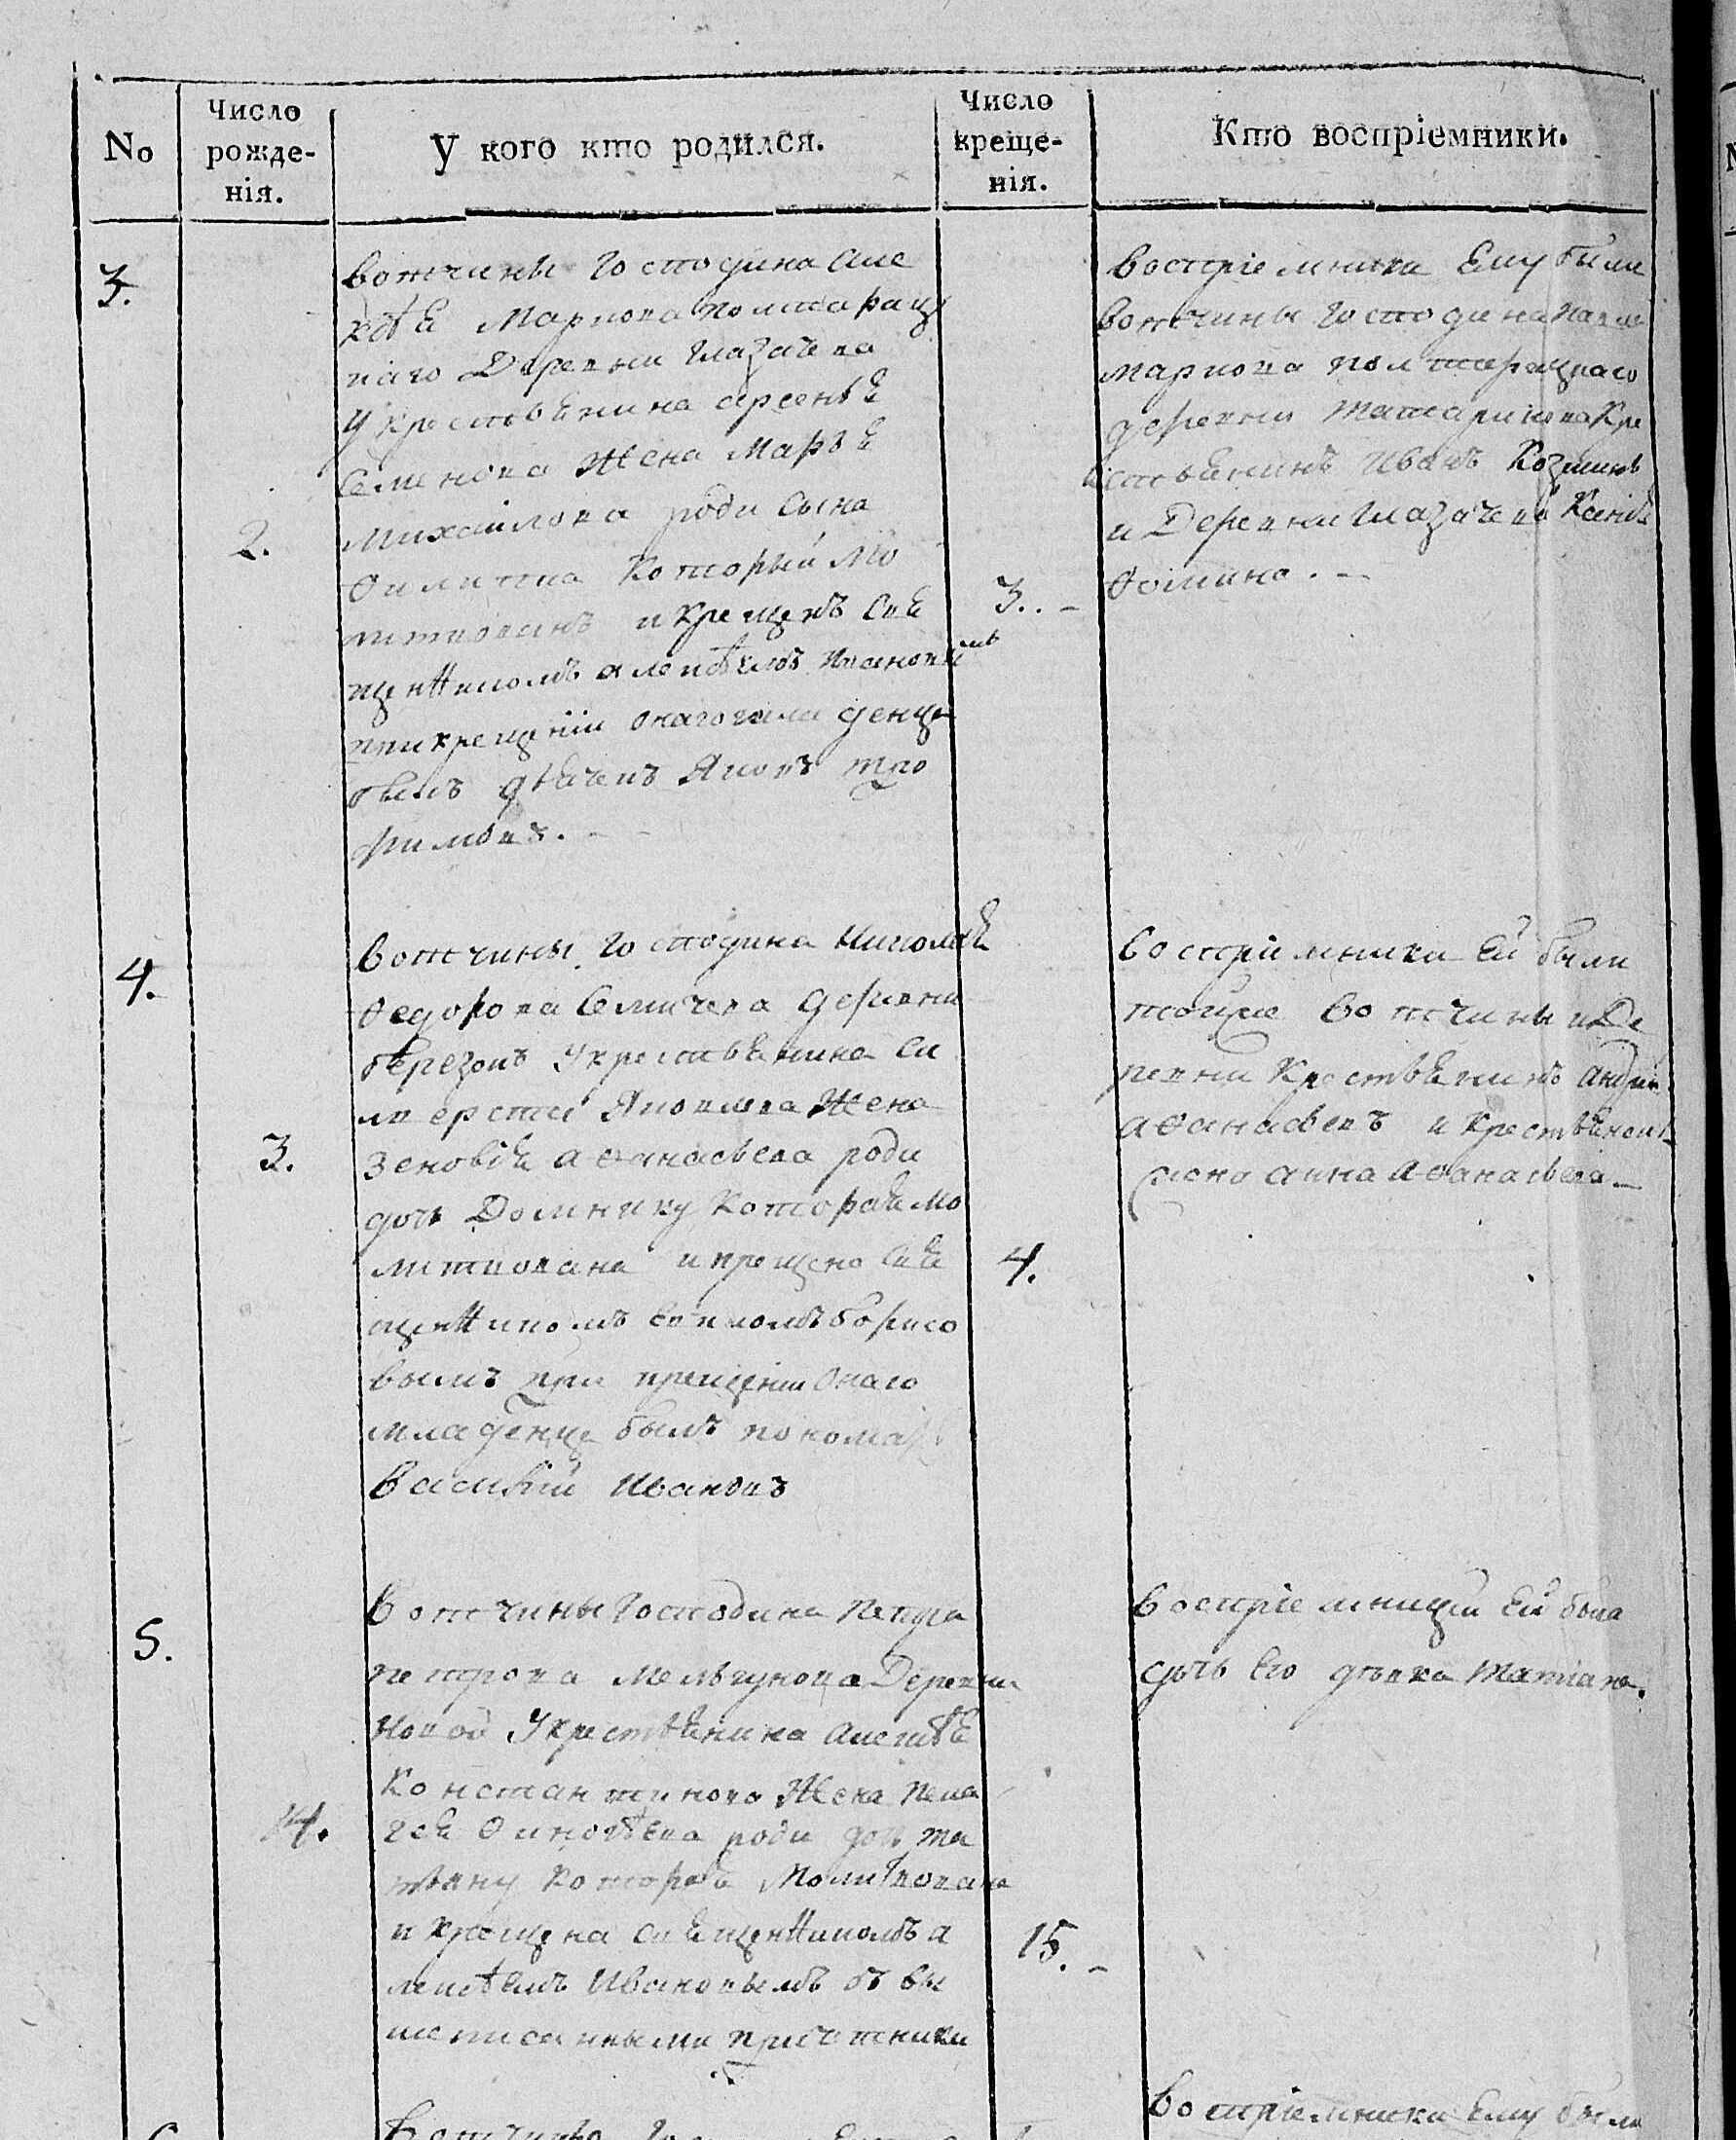 No
Число рожде- нія.
У кого кто родился.
Число креще- нія.
Кто воспріемники.
3.
2.
вотчины Господина Але
ксѣя Маркова полтарац
каго Деревни Глазачева
у крестьянина арсенья
Семенова Жена Марья
Михаилова роди сына
Филиппа Который мо
литвованъ и крещенъ Свя
щенникомъ алексѣемъ Ивановымъ
при крещеніи онаго младенца
былъ дьячекъ Яковъ тро
фимовъ.
3.
Воспріемники Ему были
вотчины Господина
маркова полтарацкаго
деревни татаринова Кре
стьянинъ Иванъ Козминъ
и Деревни Глазачева
Фомина.
4.
3.
вотчины Господина Николая
Федорова Семичева деревни
березокъ у крестьянина си
Яковлева Жена
Зеновія афанасьева роди
дочь Домнику Которая мо
литвована и крещена Свя
щенникомъ борисо
вымъ при крещеніи онаго
младенца былъ пономарь
Василій Ивановъ
4.
Воспріемники Ей были
тойже вотчины и Де
ревни Крестьянинъ андрей
афанасьевъ и крестьянская
жена анна Афанасьева
5.
14.
вотчины Господина Петра
петрова Мельгунова Деревни
Новой У крестьянина алексѣя
Константинова Жена Пела
гея роди дочь та
тьяну Которая Молитвована
и крещена священникомъ а
лексѣемъ Ивановымъ съ вы
шеписанными причотники
15.
Воспріемницей Ей была
дочь Его дѣвка татіана.
Воспріемники Ему были